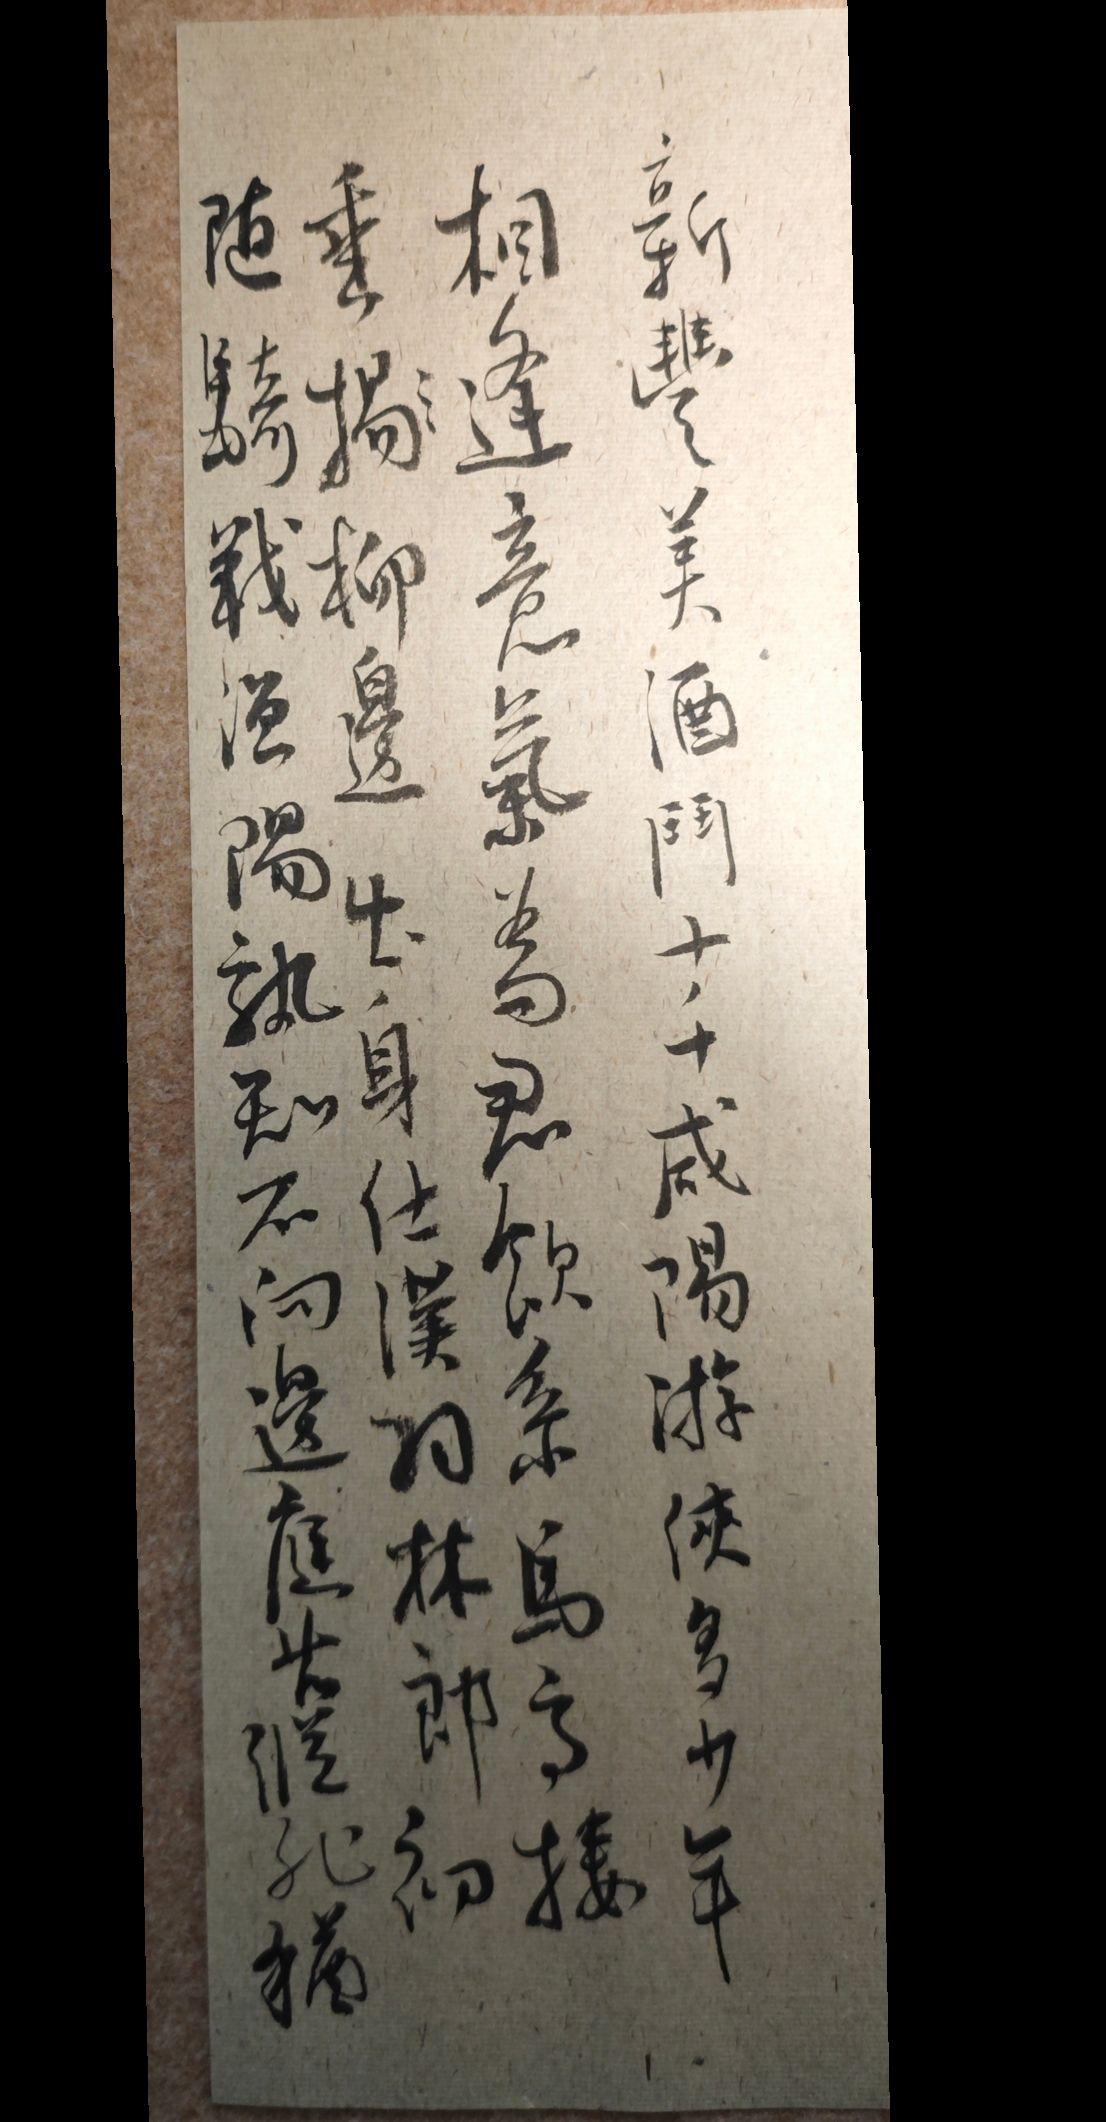 新豐美酒鬥十千咸陽游俠多少年
相逢意氣為君飲系馬高樓
垂楊柳邊出身仕漢羽林郎初
随騎戰漁陽孰知不向邊庭苦縱死猶